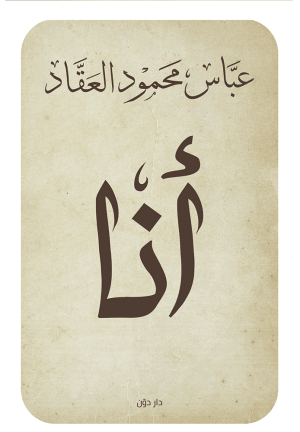 عبَّاس محمود العقَّاد
أنا
دار دوِّن